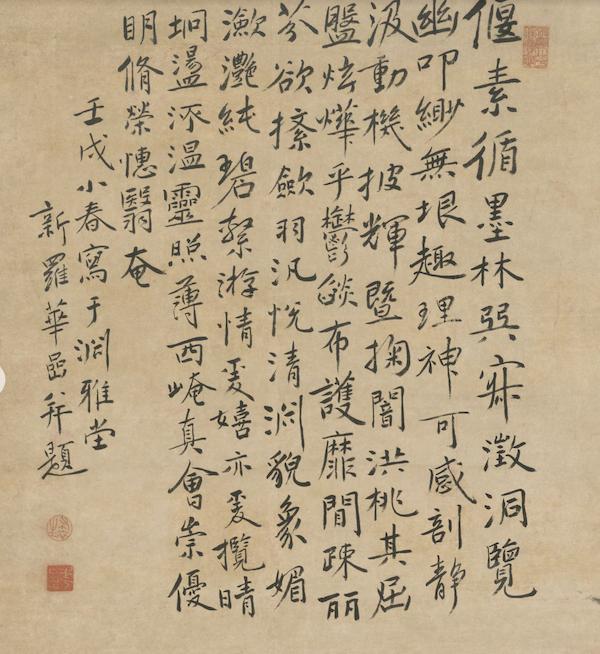 偃素循墨林與寐澂洞覽
幽叩緲無垠趣理神可感剖靜
汲動機披輝暨掬闇洪桃其屈
盤炫燁乎鬱燄布護靡間疎丽
芬欲搽歛羽汎悅清淵貌象媚
漱灔純碧縏游情爰嬉亦爰攬晴
坰盪泝溫靈照薄西崦真會崇優
明脩榮憓翳奄
壬戌小春寫于淵雅堂
新羅華嵒并題